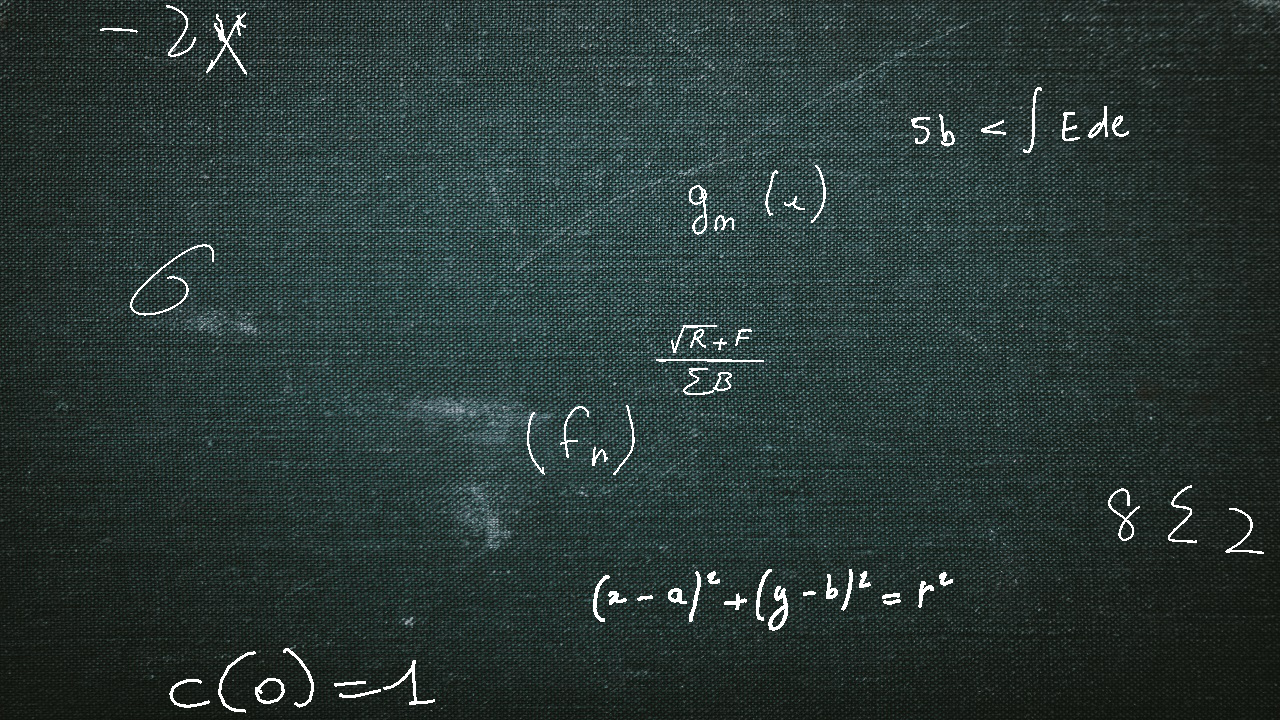 - 2 X
5b < ∫ E de
g_m (x)
σ
(√R + F) / (∑ B)
(f_n)
8 ∑ 2
(x - a)² + (y - b)² = r²
c(0) = 1